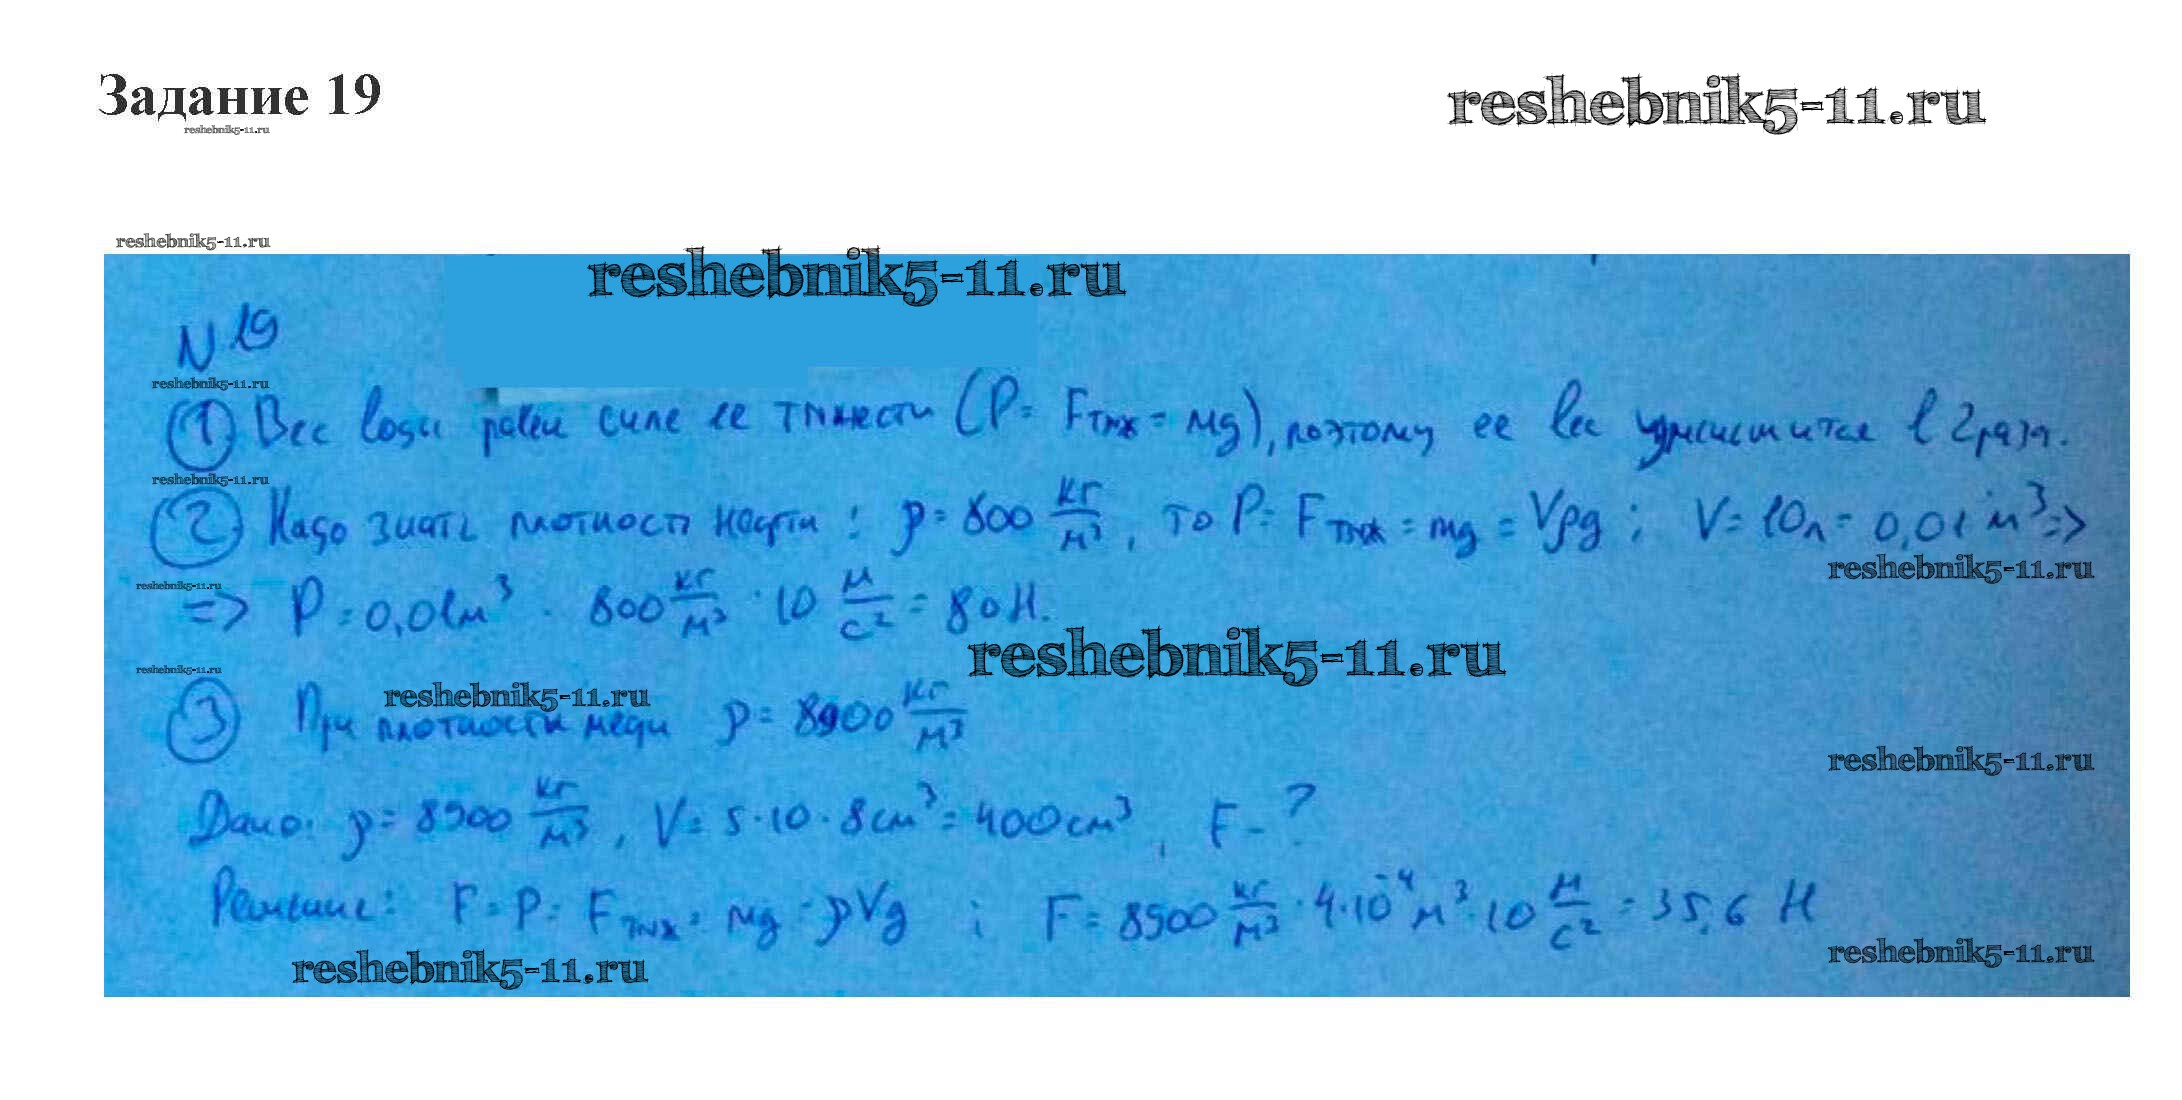 Задание 19
reshebnik5-11.ru
reshebnik5-11.ru
reshebnik5-11.ru
reshebnik5-11.ru
N 19
reshebnik5-11.ru
1 Вес воды равен силе ее тяжести (P = Fтяж = mg), поэтому ее вес уменьшится в 2 раза.
reshebnik5-11.ru
2 Надо знать плотность нефти: ρ = 800 кг/м³, то P = Fтяж = mg = Vρg; V = 10л = 0,01 м³ =>
reshebnik5-11.ru
reshebnik5-11.ru
=> P = 0,01м³ · 800 кг/м³ · 10 м/с² = 80 Н.
reshebnik5-11.ru
reshebnik5-11.ru
reshebnik5-11.ru
3 При плотности меди ρ = 8900 кг/м³
reshebnik5-11.ru
Дано: ρ = 8900 кг/м³, V = 5·10·8см³ = 400см³, F - ?
Решение: F = P = Fтяж = mg = ρVg ; F = 8900 кг/м³ · 4·10⁻⁴ м³ · 10 м/с² = 35,6 Н
reshebnik5-11.ru
reshebnik5-11.ru